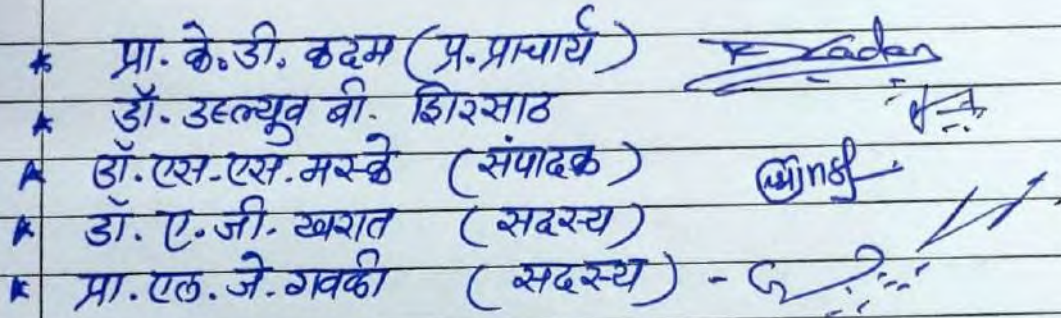 * प्रा. के. डी. कदम (प्र. प्राचार्य)
* डॉ. डब्ल्यूव बी. शिरसाठ
* डॉ. एस. एस. मस्के (संपादक)
* डॉ. ए. जी. खरात (सदस्य)
* प्रा. एल. जे. गवळी (सदस्य) -